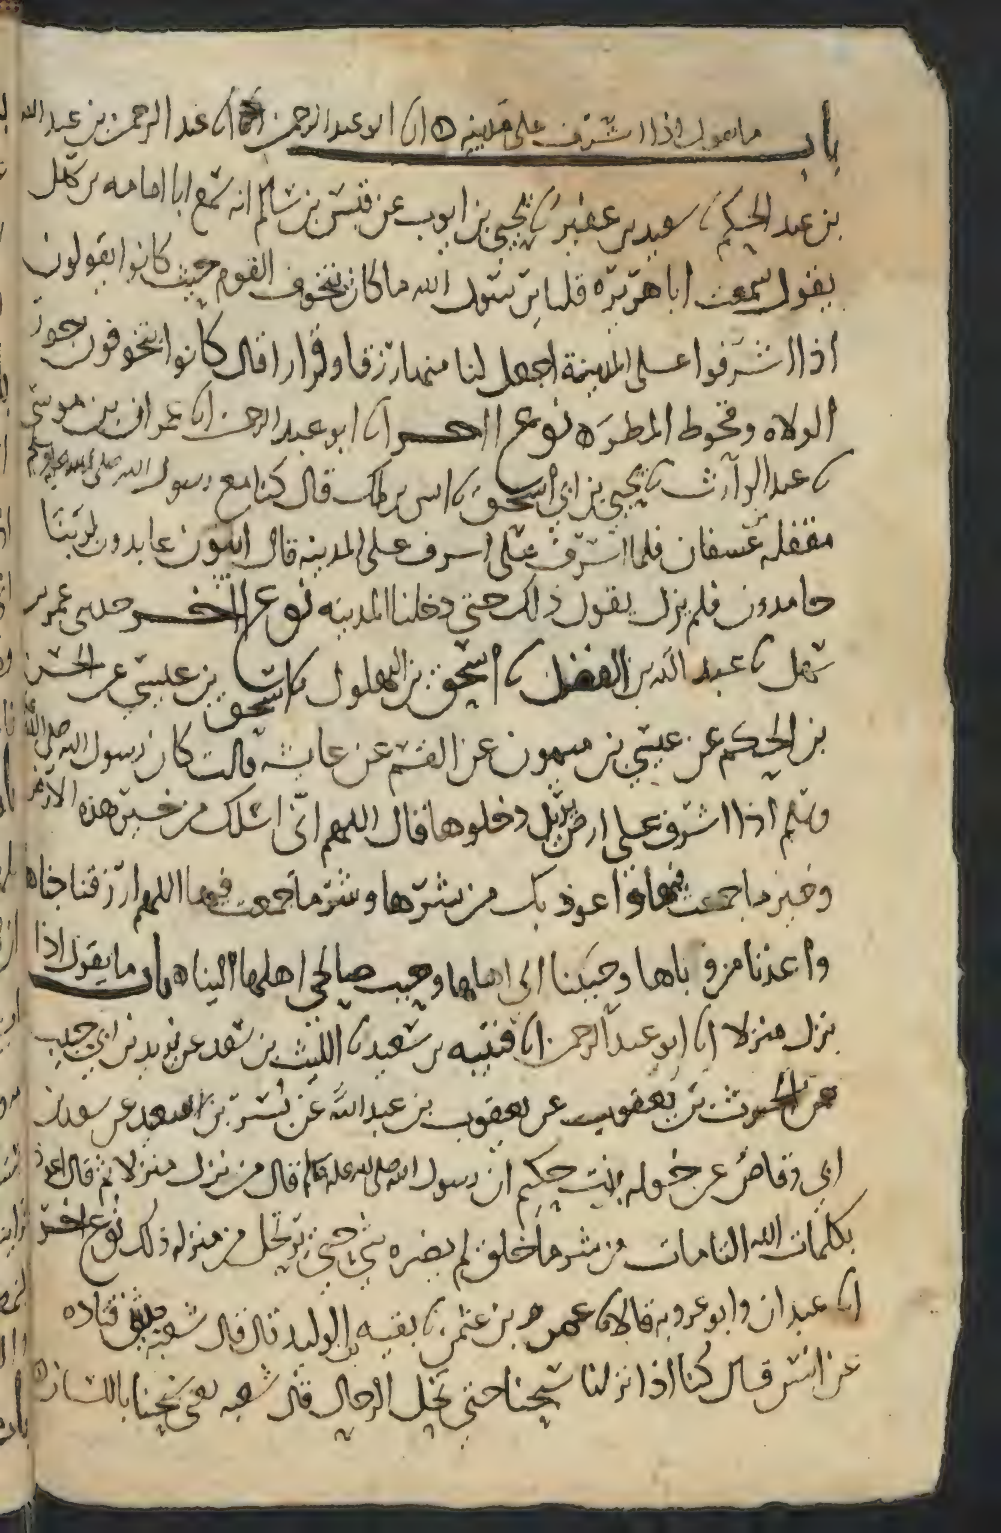 باب ما يقول اذا اشرف على مدينه ه انا ابو عبد الرحمن انا عبد الرحمن بن عبد الله
بن عبد الحكم نا سعيد بن عفير نا يحيى بن ايوب عن قيس بن سالم انه سمع ابا امامه بن سهل
يقول سمعت ابا هريره قلنا يرسول الله ما كان يتخوف القوم حيث كانوا يقولون
اذا اشرفوا على المدينة اجعل لنا منها رزقا وقرارا قال كانوا يتخوفون جور
الولاه وقحوط المطر ه نوع اخر انا ابو عبد الرحمن انا عمران بن موسى
نا عبد الوارث نا يحيى بن ابي اسحق نا انس بن ملك قال كنا مع رسول الله صلى الله عليه وسلم
مقفله من عسفان فلما اشرف على المدينه قال ايبون عابدون لربنا
حامدون فلم يزل يقول ذلك حتى دخلنا المدينه نوع اخر حدثني عمر بن
سهل نا عبد الله بن الفضل نا اسحق بن البهلول نا اسحق بن عيسى عن الحسن
بن الحكم عن عيسى بن ميمون عن القسم عن عايشه قالت كان رسول الله صلى الله عليه
وسلم اذا اشرف على ارض يريد دخلوها قال اللهم اني اسلك من خير هذه الارض
وخير ما جمعت فيها واعوذ بك من شرها وشر ما جمعت فيها اللهم ارزقنا جناها
واعذنا من وباها وحببنا الى اهلها وحبب صالحي اهلها الينا ه باب ما يقول اذا
نزل منزلا انا ابو عبد الرحمن انا قتيبه بن سعيد نا الليث بن سعد عن يزيد بن ابي حبيب
عن الحرث بن يعقوب عن يعقوب بن عبد الله عن بسر بن سعيد عن سعد بن
ابي وقاص عن خوله بنت حكيم ان رسول الله صلى الله عليه وسلم قال من نزل منزلا ثم قال اعوذ
بكلمات الله التامات من شر ما خلق لم يضره شي حتى يرتحل من منزله ذلك نوع اخر
انا عبدان وابو عروبه قالا نا عمرو بن عثمن نا بقيه بن الوليد قال قال شعبه حدثني قتاده
عن انس قال كنا اذا نزلنا سبحنا حتى نحل الرحال قال شعبه يعني سبحنا باللسان ه